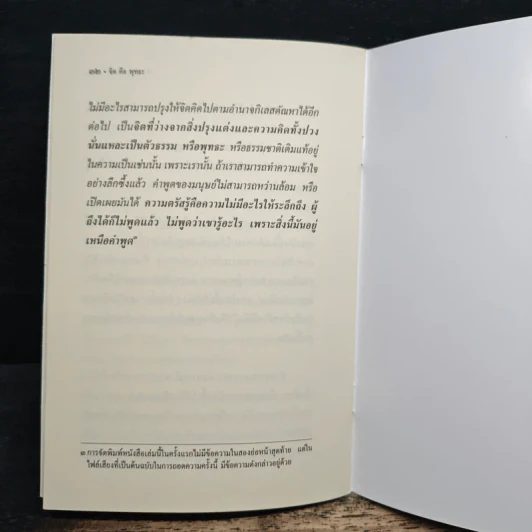 ๓๒ - จิต คือ พุทธะ
ไม่มีอะไรสามารถปรุงให้จิตคิดไปตามอำนาจกิเลสตัณหาได้อีก
ต่อไป เป็นจิตที่ว่างจากสิ่งปรุงแต่งและความคิดทั้งปวง
นั่นแหละเป็นตัวธรรม หรือพุทธะ หรือธรรมชาติเดิมแท้อยู่
ในความเป็นเช่นนั้น เพราะเรานั้น ถ้าเราสามารถทำความเข้าใจ
อย่างลึกซึ้งแล้ว คำพูดของมนุษย์ไม่สามารถหว่านล้อม หรือ
เปิดเผยมันได้ ความตรัสรู้คือความไม่มีอะไรให้ระลึกถึง ผู้
ถึงได้ก็ไม่พูดแล้ว ไม่พูดว่าเขารู้อะไร เพราะสิ่งนี้มันอยู่
เหนือคำพูด"
๓ การจัดพิมพ์หนังสือเล่มนี้ในครั้งแรกไม่มีข้อความในสองย่อหน้าสุดท้าย แต่ใน
ไฟล์เสียงที่เป็นต้นฉบับในการถอดความครั้งนี้ มีข้อความดังกล่าวอยู่ด้วย